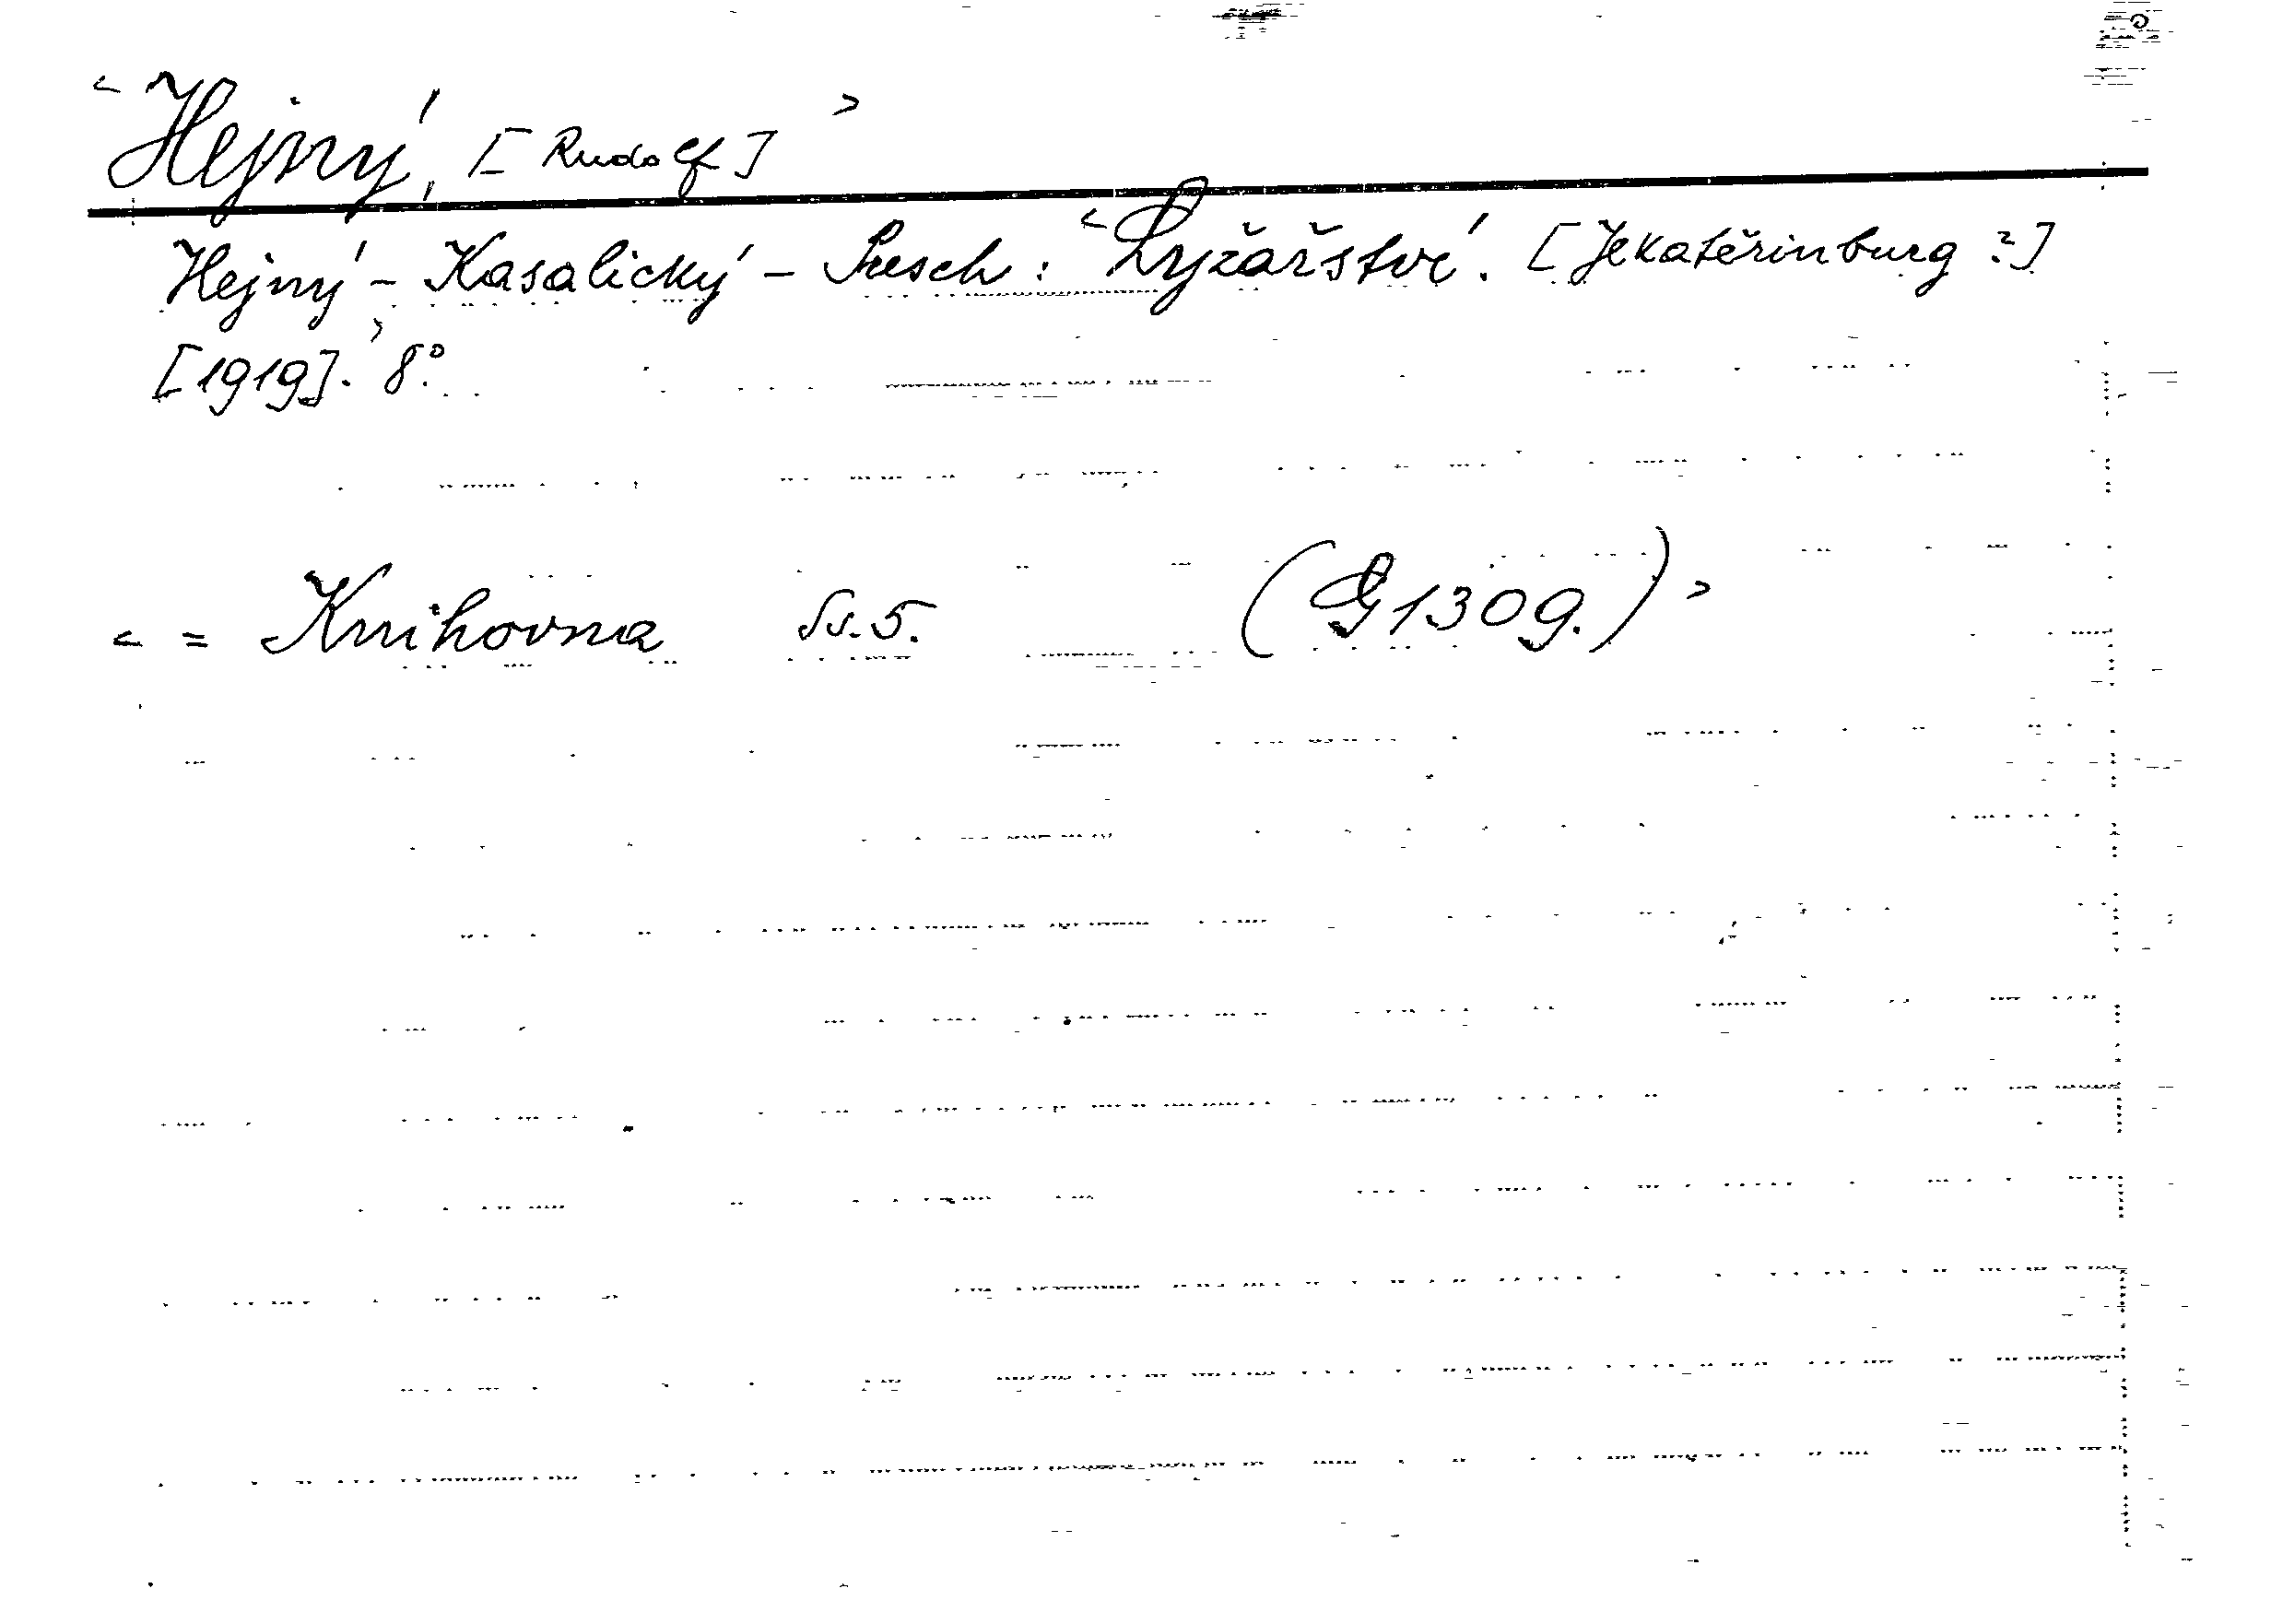 < Hejný, [Rudolf] >
Hejný - Kasalický - : < Lyžařství. [Jekatěrinburg ?]
[1919]. > 8°.
< = Knihovna Sv. 5. (G 1309.) >